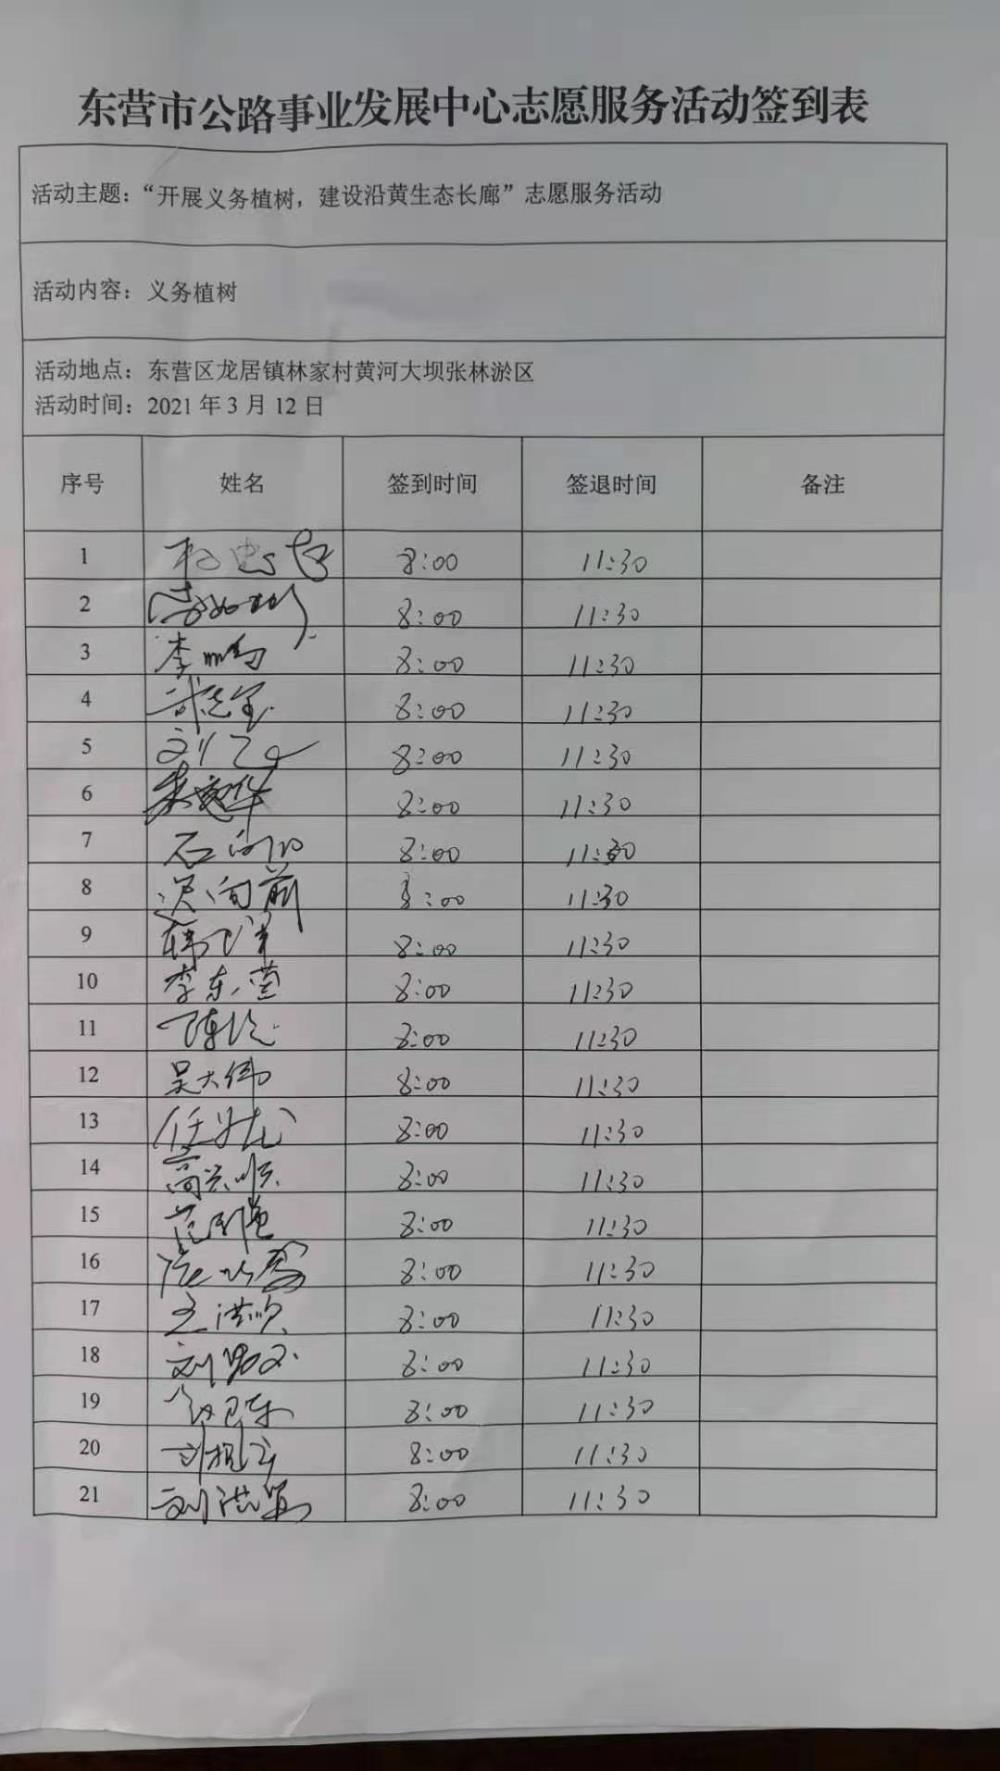 东营市公路事业发展中心志愿服务活动签到表
活动主题：“开展义务植树，建设沿黄生态长廊”志愿服务活动
活动内容：义务植树
活动地点：东营区龙居镇林家村黄河大坝张林淤区
活动时间：2021年3月12日
序号 姓名 签到时间 签退时间 备注
1 8:00 11:30
2 8:00 11:30
3 李 8:00 11:30
4 8:00 11:30
5 刘 8:00 11:30
6 8:00 11:30
7 石 8:00 11:30
8 迟向前 8:00 11:30
9 韩 8:00 11:30
10 李东营 8:00 11:30
11 陈 8:00 11:30
12 吴大伟 8:00 11:30
13 任 8:00 11:30
14 高兴顺 8:00 11:30
15 范 8:00 11:30
16 8:00 11:30
17 王洪 8:00 11:30
18 刘 8:00 11:30
19 8:00 11:30
20 8:00 11:30
21 刘洪 8:00 11:30